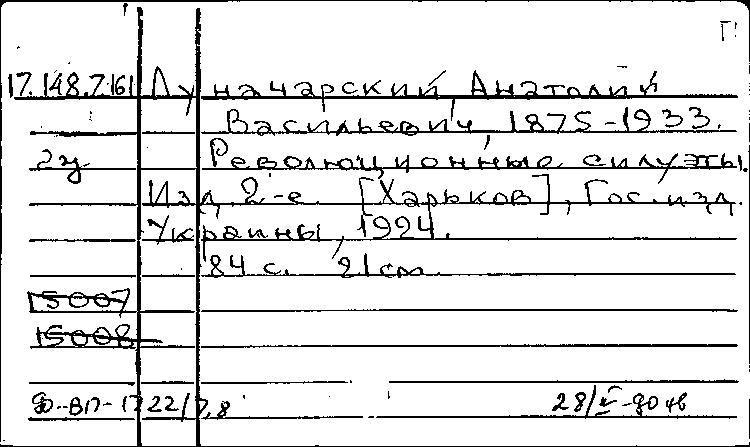 17.148.7.161 Луначарский, Анатолий
Васильевич, 1875-1933.
2у Революционные силуэты.
Изд. 2-е. [Харьков], Гос. изд.
Украины, 1924.
84 с. 21 см.
15007
15008
Ф-ВП-1722/7,8 28/